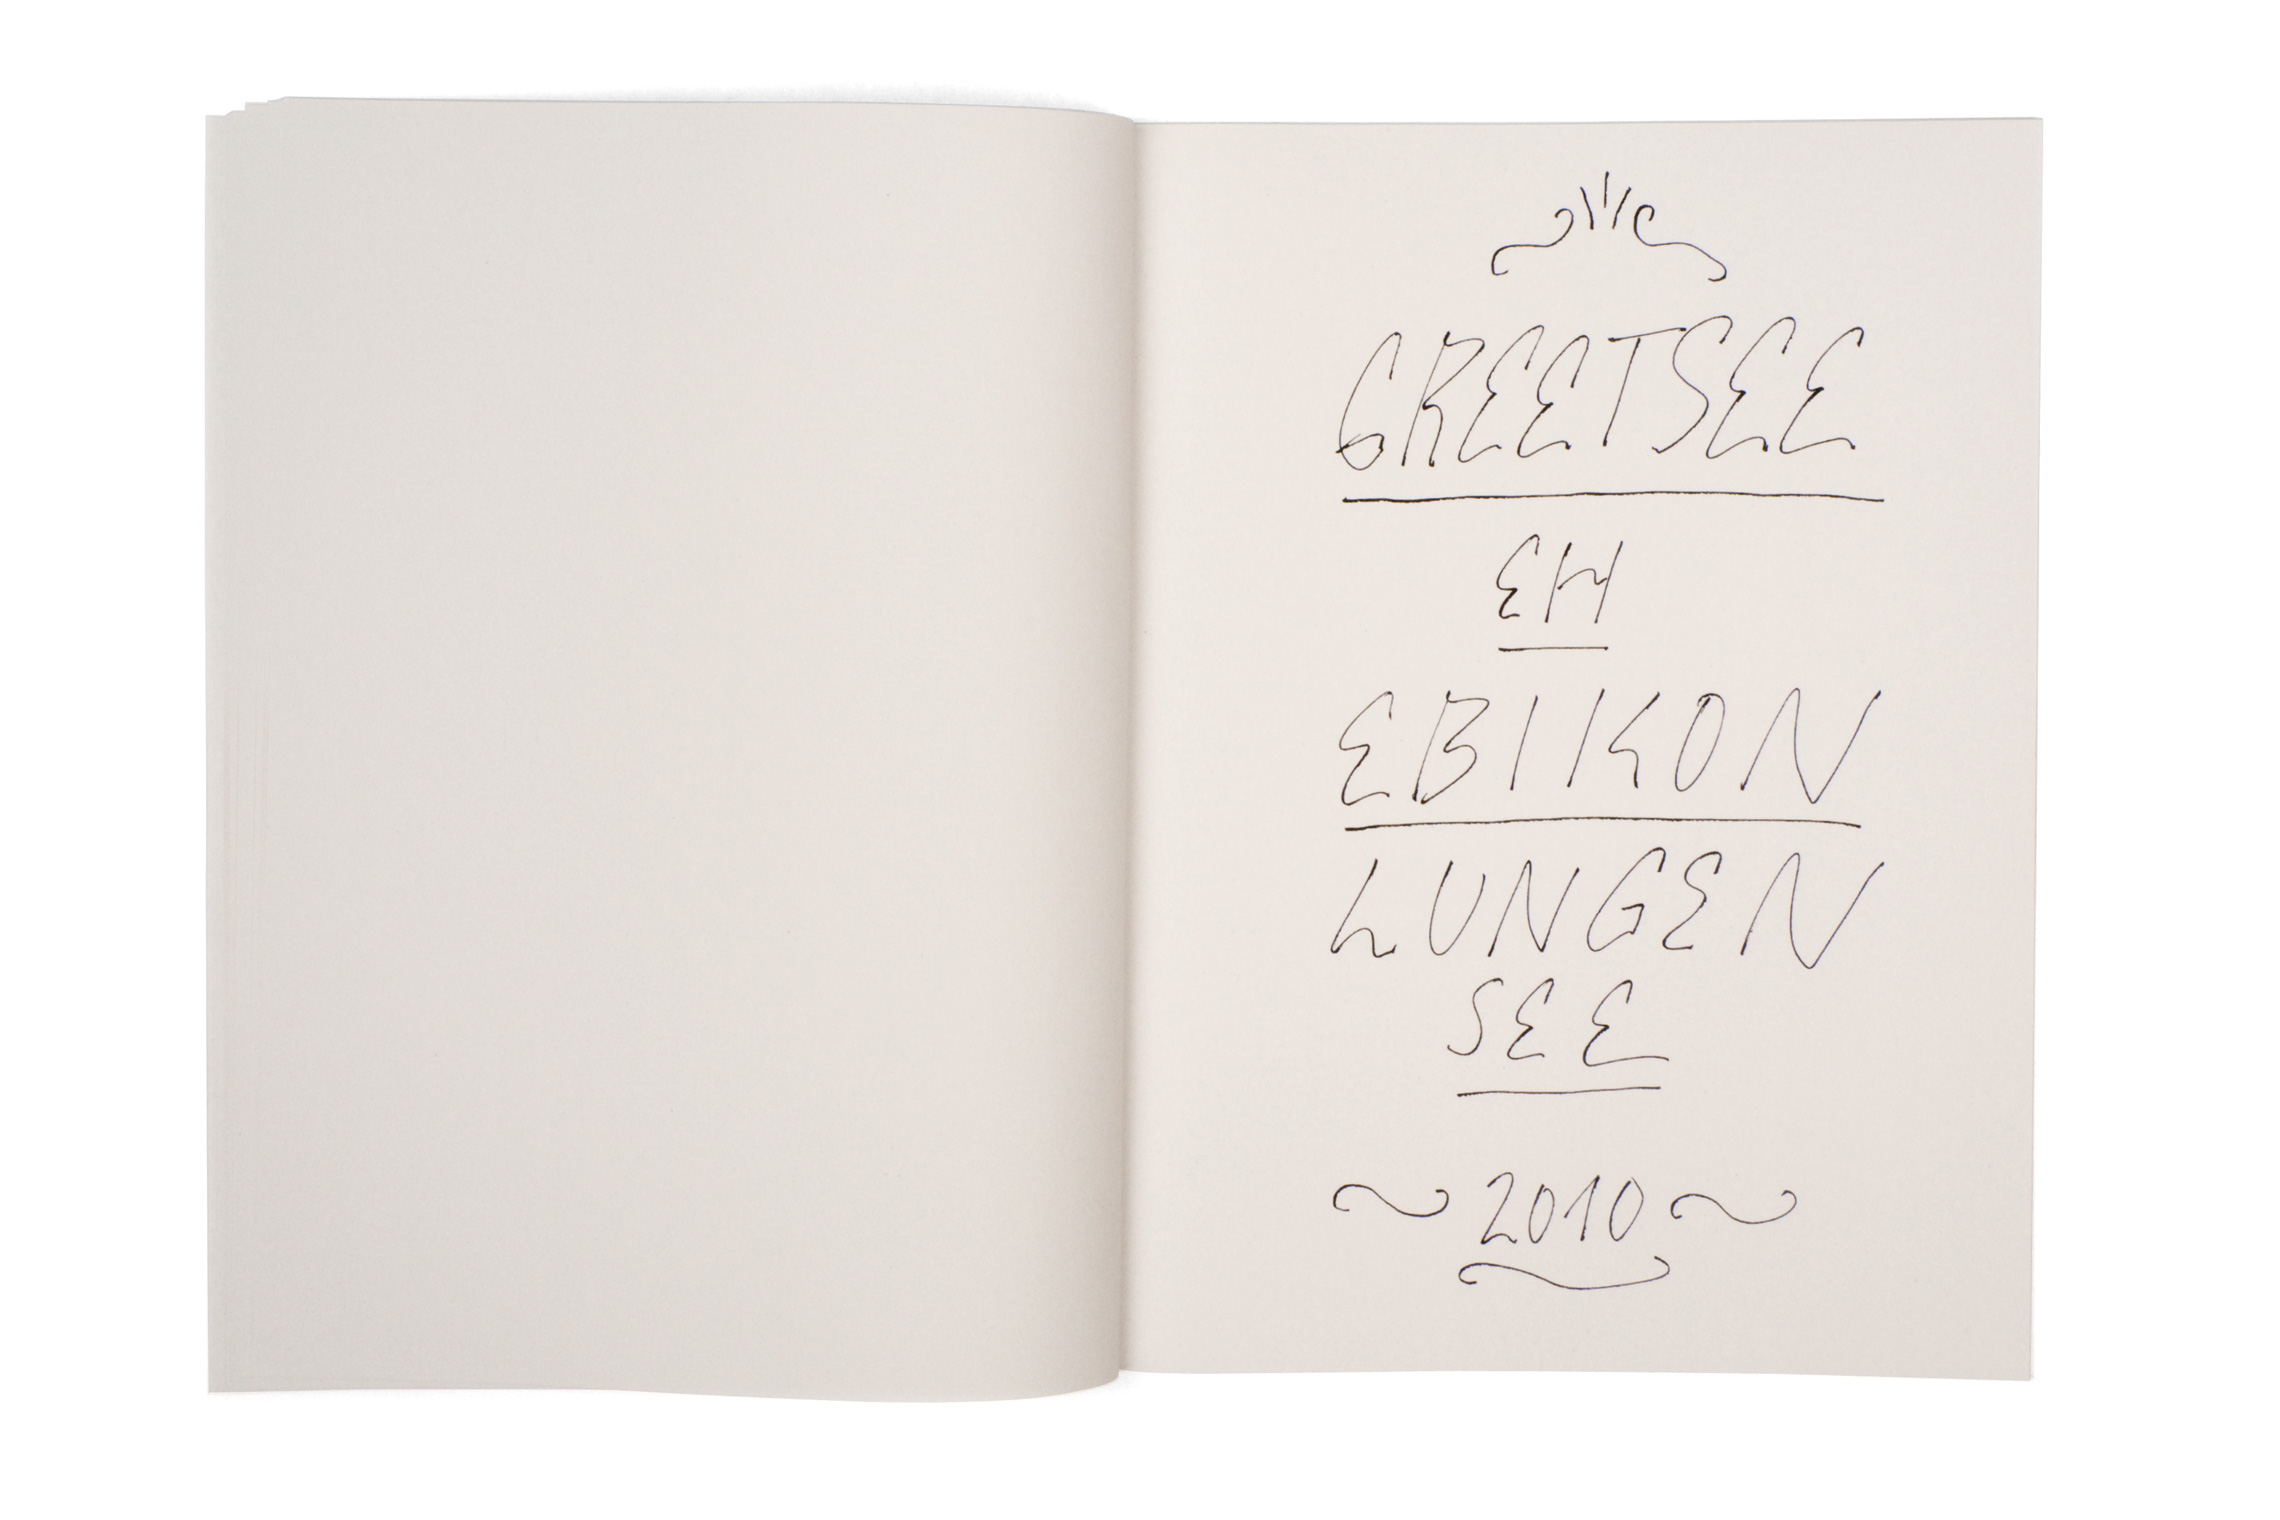 GREETSEE
EH
EBIKON
LUNGEN
SEE
2010